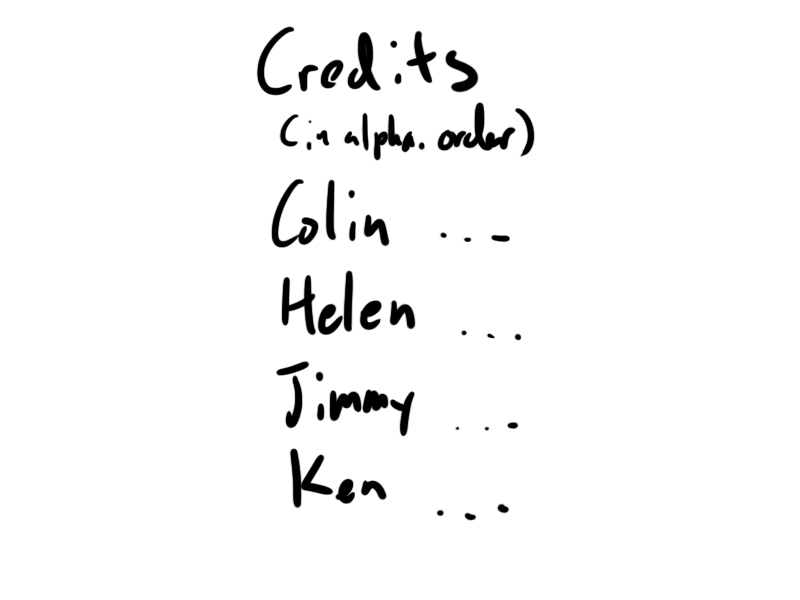 Credits
(in alpha. order)
Colin ...
Helen ...
Jimmy ...
Ken ...